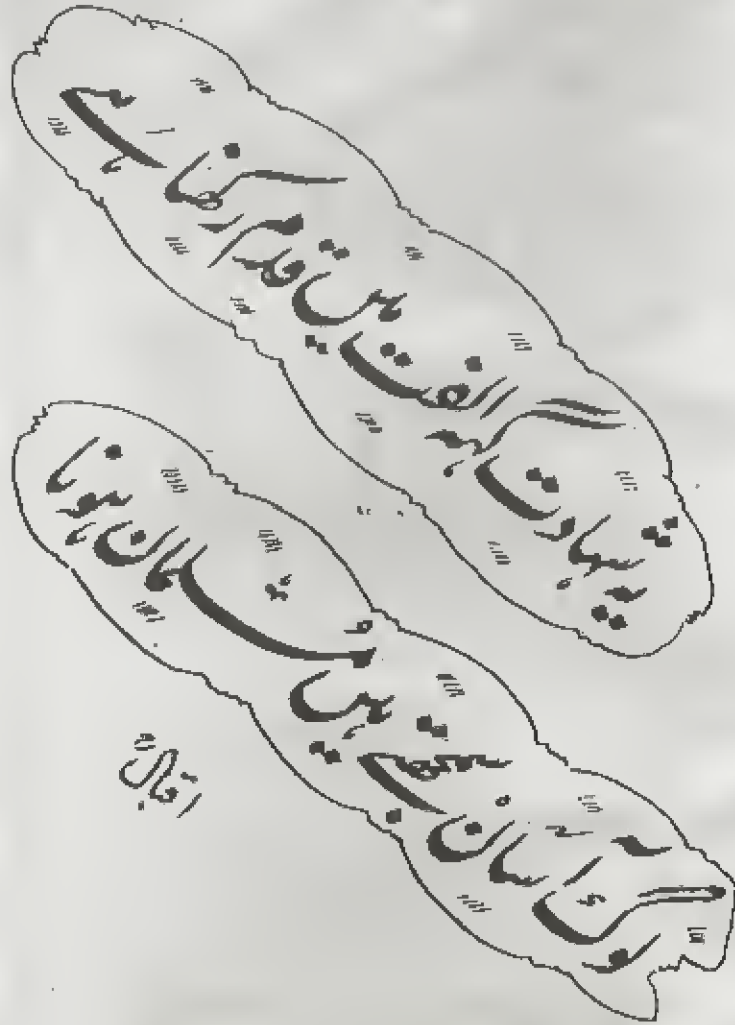 یہ شہادت گہہ الفت میں قدم رکھنا ہے
لوگ آسان سمجھتے ہیں مسلماں ہونا
اقبالؒ